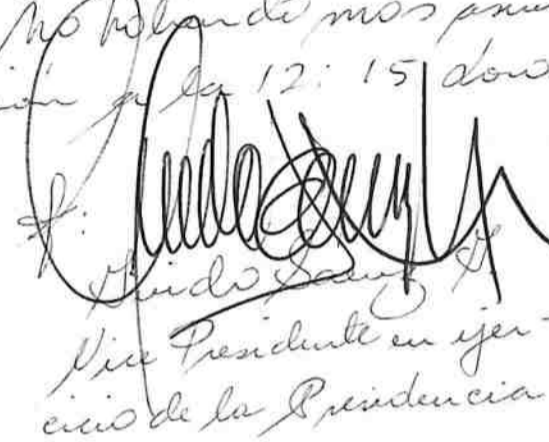 no habiendo más asun
ión a la 12:15 doce
f:
Guido Sáenz G.
Vice Presidente en ejer-
cicio de la Presidencia